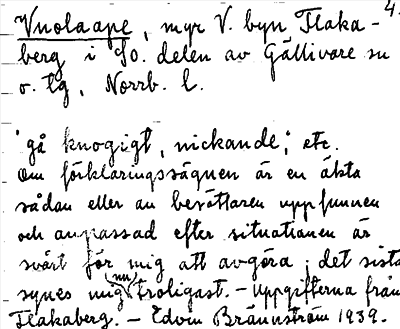 4.
Vuolaape, myr V. byn Flaka-
berg i SO. delen av Gällivare sn
o. tg, Norrb. l.
'gå knogigt, nickande', etc.
Om förklaringssägnen är en äkta
sådan eller av berättaren uppfunnen
och anpassad efter situationen är
svårt för mig att avgöra; det sista
synes mig nu troligast. – Uppgifterna från
Flakaberg. – Edvin Brännström 1939.